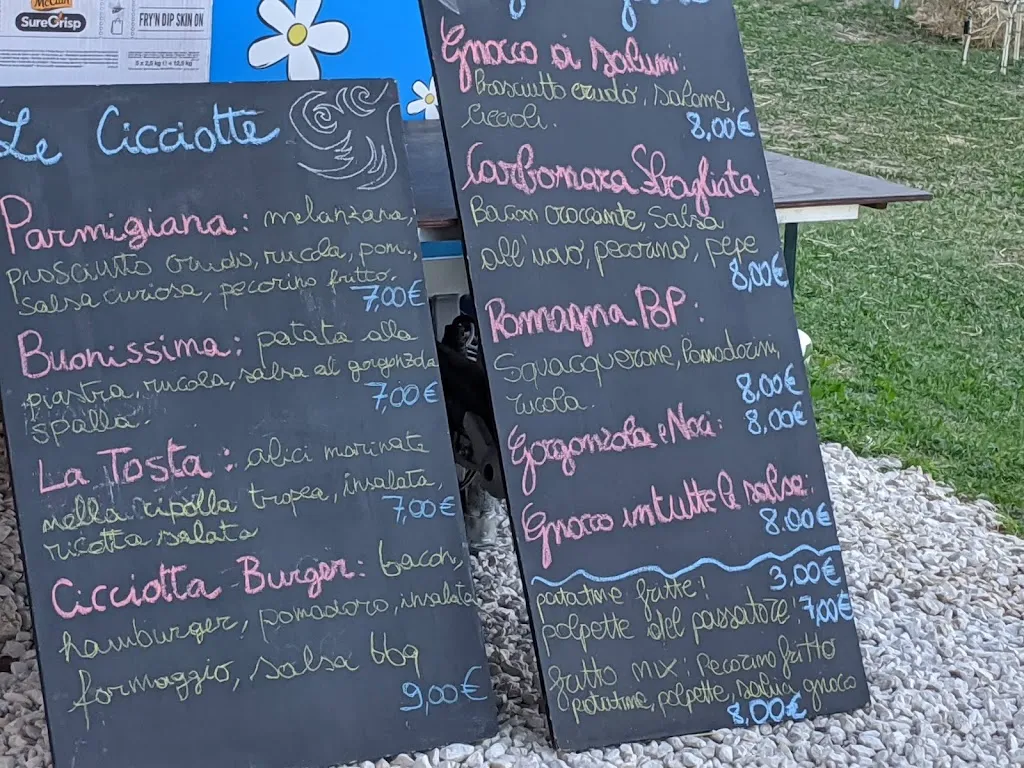 McCain
SureCrisp
FRY'N DIP SKIN ON
Le Cicciotte
Parmigiana: melanzana,
prosciutto crudo, rucola, pom,
salsa curiosa, pecorino fritto,
7,00€
Buonissima: patata alla
piastra, rucola, salsa al gorgonzola
spalla.
7,00€
La Tosta: alici marinate
nella cipolla tropea, insalata,
ricotta salata
7,00€
Cicciotta Burger: bacon,
hamburger, pomodoro, insalata
formaggio, salsa bbq
9,00€
Gnocco ai Salumi:
Prosciutto crudo, salame,
ciccioli.
8,00€
Carbonara Sbagliata
Bacon croccante, salsa
all'uovo, pecorino, pepe
8,00€
Romagna POP:
Squacquerone, Pomodorini,
rucola.
8,00€
Gorgonzola e Noci:
8,00€
Gnocco in tutte le salse:
8.00€
patatine fritte!
3.00€
polpette del passatore!
7,00€
fritto mix: Pecorino fritto
patatine, polpette, salvia, gnocco
8,00€